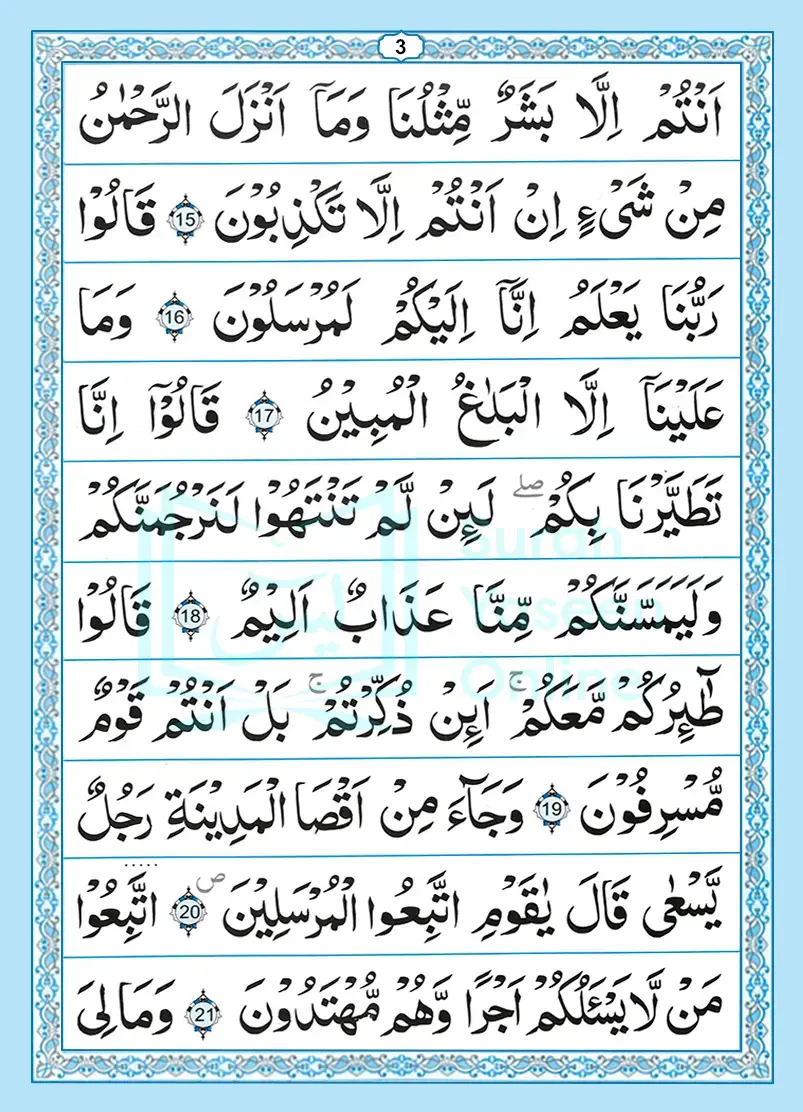 3
اَنْتُمْ اِلَّا بَشَرٌ مِّثْلُنَا وَمَآ اَنْزَلَ الرَّحْمٰنُ
مِنْ شَيْءٍ اِنْ اَنْتُمْ اِلَّا تَكْذِبُوْنَ 15 قَالُوْا
رَبُّنَا يَعْلَمُ اِنَّآ اِلَيْكُمْ لَمُرْسَلُوْنَ 16 وَمَا
عَلَيْنَآ اِلَّا الْبَلٰغُ الْمُبِيْنُ 17 قَالُوْٓا اِنَّا
تَطَيَّرْنَا بِكُمْ ۖ لَئِنْ لَّمْ تَنْتَهُوْا لَنَرْجُمَنَّكُمْ
وَلَيَمَسَّنَّكُمْ مِّنَّا عَذَابٌ اَلِيْمٌ 18 قَالُوْا
طَآئِرُكُمْ مَّعَكُمْ ۚ اَئِنْ ذُكِّرْتُمْ ۚ بَلْ اَنْتُمْ قَوْمٌ
مُّسْرِفُوْنَ 19 وَجَآءَ مِنْ اَقْصَا الْمَدِيْنَةِ رَجُلٌ
يَّسْعٰى قَالَ يٰقَوْمِ اتَّبِعُوا الْمُرْسَلِيْنَ ص 20 اتَّبِعُوْا
مَنْ لَّا يَسْـَٔلُكُمْ اَجْرًا وَّهُمْ مُّهْتَدُوْنَ 21 وَمَا لِيَ
Surah
Yaseen
Online
يٰسٓ